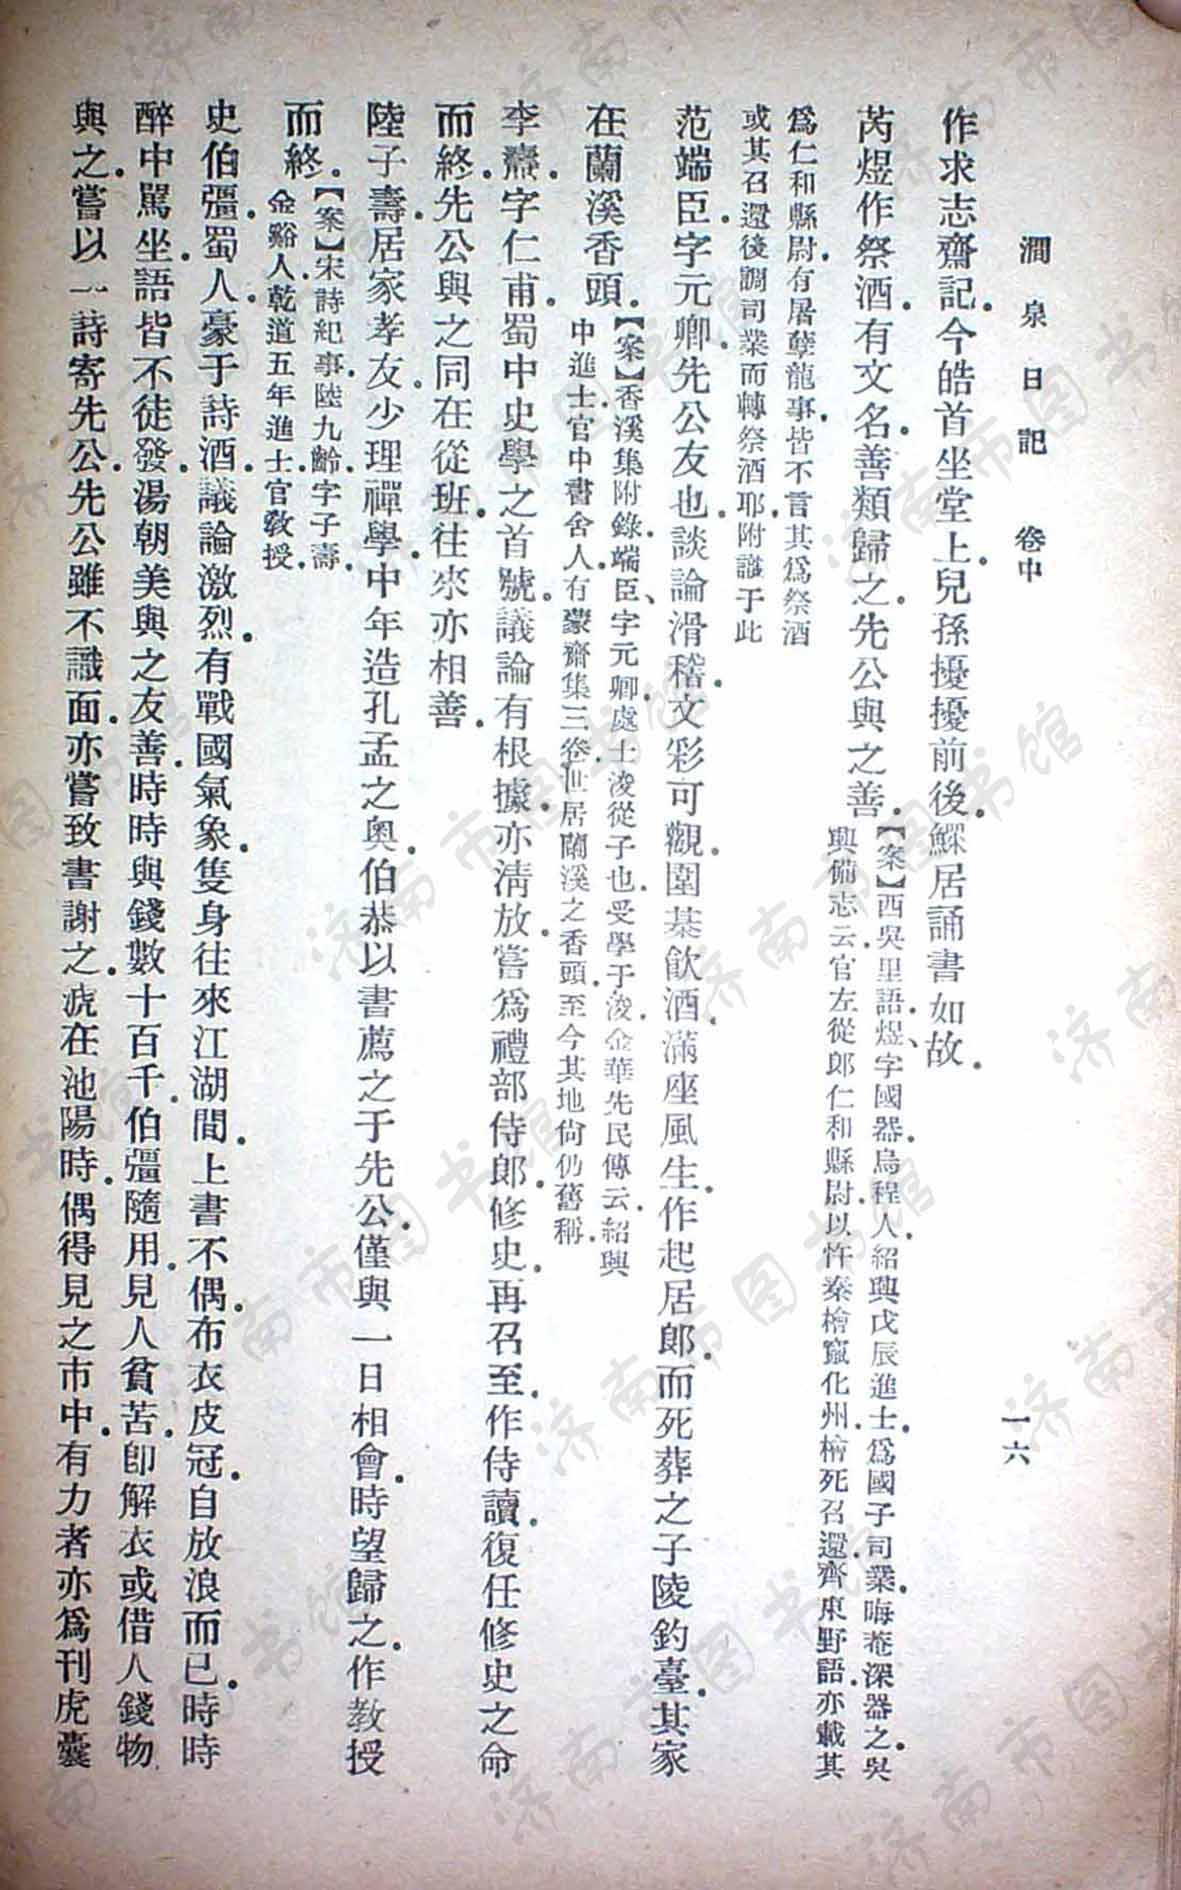 澗泉日記　卷中　一六
作求志齋記．今皓首坐堂上．兒孫擾擾前後．鰥居誦書如故．
芮煜作祭酒．有文名．善類歸之．先公與之善．【案】西吳里語．煜、字國器．烏程人．紹興戊辰進士．爲國子司業．晦菴深器之．吳
興備志云．官左從郎仁和縣尉．以忤秦檜竄化州．檜死召還．齊東野語．亦載其
爲仁和縣尉．有屠孽龍事．皆不言其爲祭酒
或其召還後調司業而轉祭酒耶．附識于此
范端臣．字元卿．先公友也．談論滑稽．文彩可觀．圍棊飲酒．滿座風生．作起居郎．而死葬之子陵釣臺．其家
在蘭溪香頭．【案】香溪集附錄．端臣、字元卿．處士浚從子也．受學于浚．金華先民傳云．紹興
中進士．官中書舍人．有蒙齋集三卷．世居蘭溪之香頭．至今其地尙仍舊稱．
李燾．字仁甫．蜀中史學之首號．議論有根據．亦淸放．嘗爲禮部侍郎．修史．再召至．作侍讀．復任修史之命
而終．先公與之同在從班．往來亦相善．
陸子壽．居家孝友．少理禪學．中年造孔孟之奧．伯恭以書薦之于先公．僅與一日相會．時望歸之．作敎授
而終．【案】宋詩紀事．陸九齡．字子壽．
金谿人．乾道五年進士．官敎授．
史伯彊．蜀人．豪于詩酒．議論激烈．有戰國氣象．隻身往來江湖間．上書不偶．布衣皮冠．自放浪而已．時時
醉中駡坐．語皆不徒發．湯朝美與之友善．時時與錢數十百千．伯彊隨用．見人貧苦．卽解衣或借人錢物．
與之．嘗以一詩寄先公．先公雖不識面．亦嘗致書謝之．淲在池陽時．偶得見之市中．有力者亦爲刊虎囊